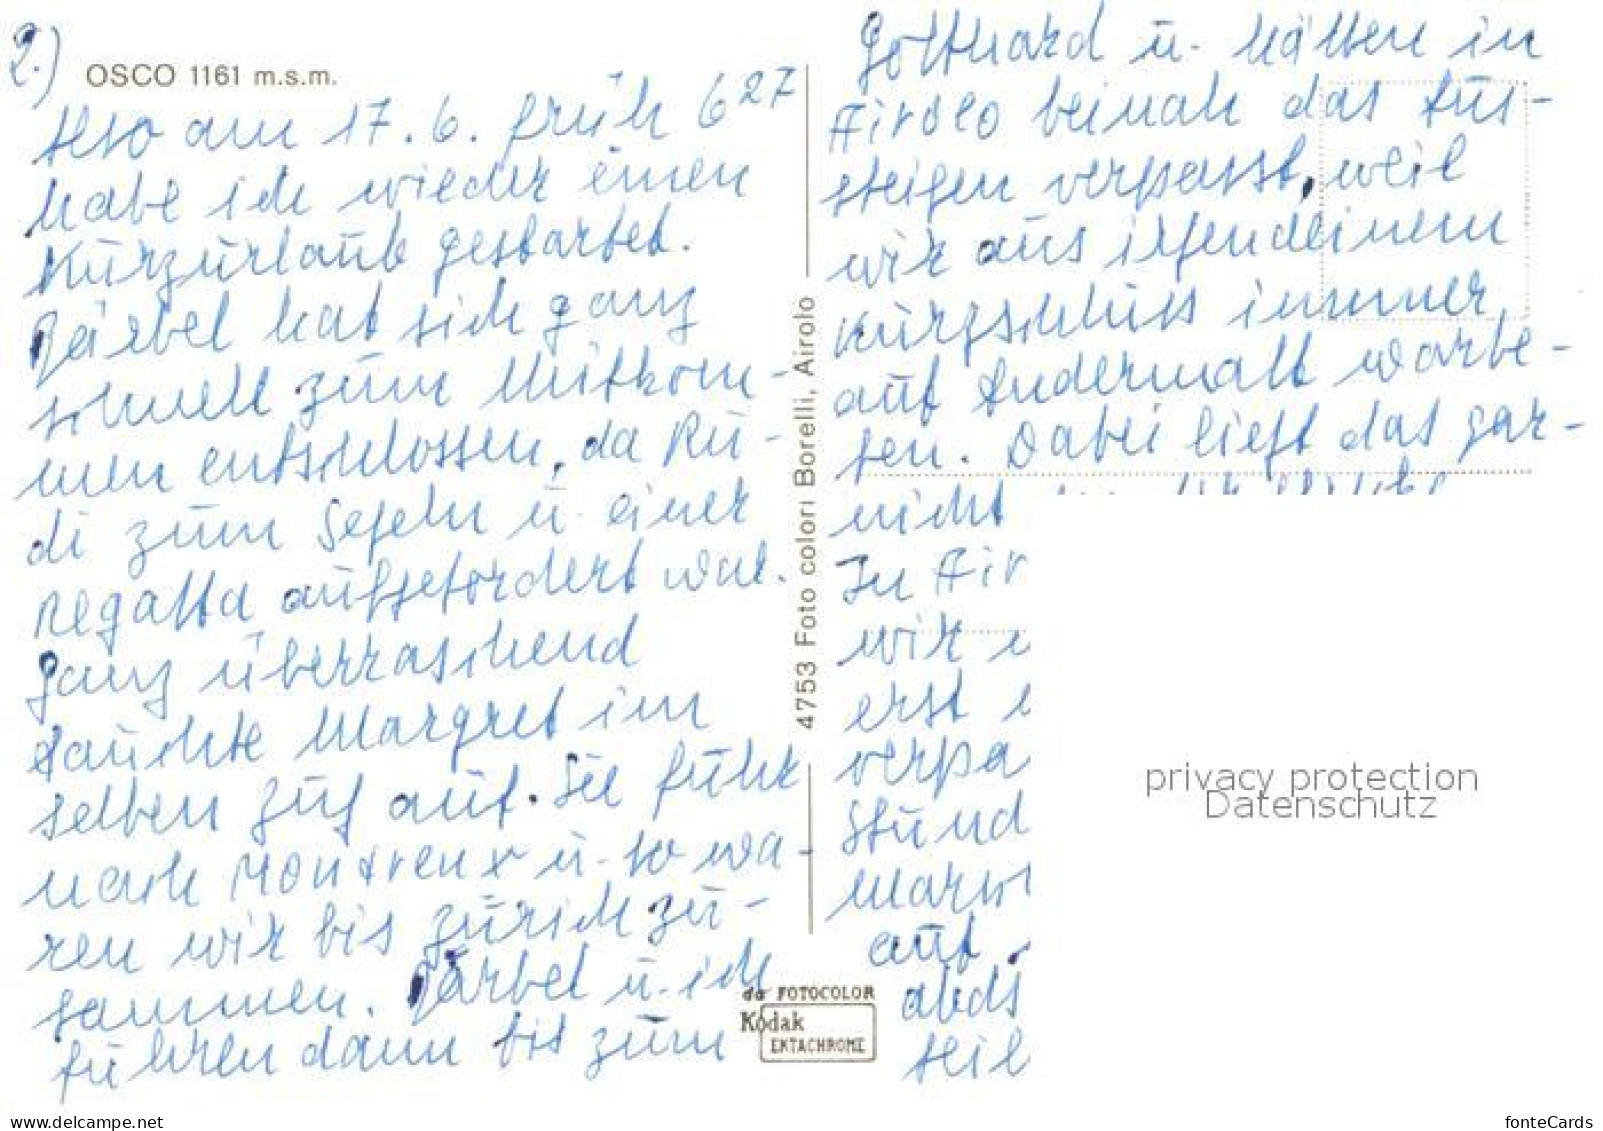 2.)
OSCO 1161 m.s.m.
Also am 17.6. früh 6 27
habe ich wieder einen
Kurzurlaub gestartet.
Bärbel hat sich ganz
schnell zum Mitkom-
men entschlossen, da Rü-
di zum Segeln u. einer
Regatta aufgefordert war.
Ganz überraschend
tauchte Margret im
selben Zug auf. Sie fuhr
nach Montreux u. so wa-
ren wir bis Zürich zu-
sammen. Bärbel u. ich
fuhren dann bis zum
4753 Foto colori Borelli, Airolo
Gotthard u. hätten in
Airolo beinah das Aus-
steigen verpasst, weil
wir aus irgendeinem
Kurzschluss immer
auf Andermatt warte-
ten. Dabei liegt das gar-
nicht
In Air
wir
erst
verpa
Stund
auf
abds
steil
da FOTOCOLOR
Kodak
EKTACHROME
privacy protection
Datenschutz
www.delcampe.net
fonteCards